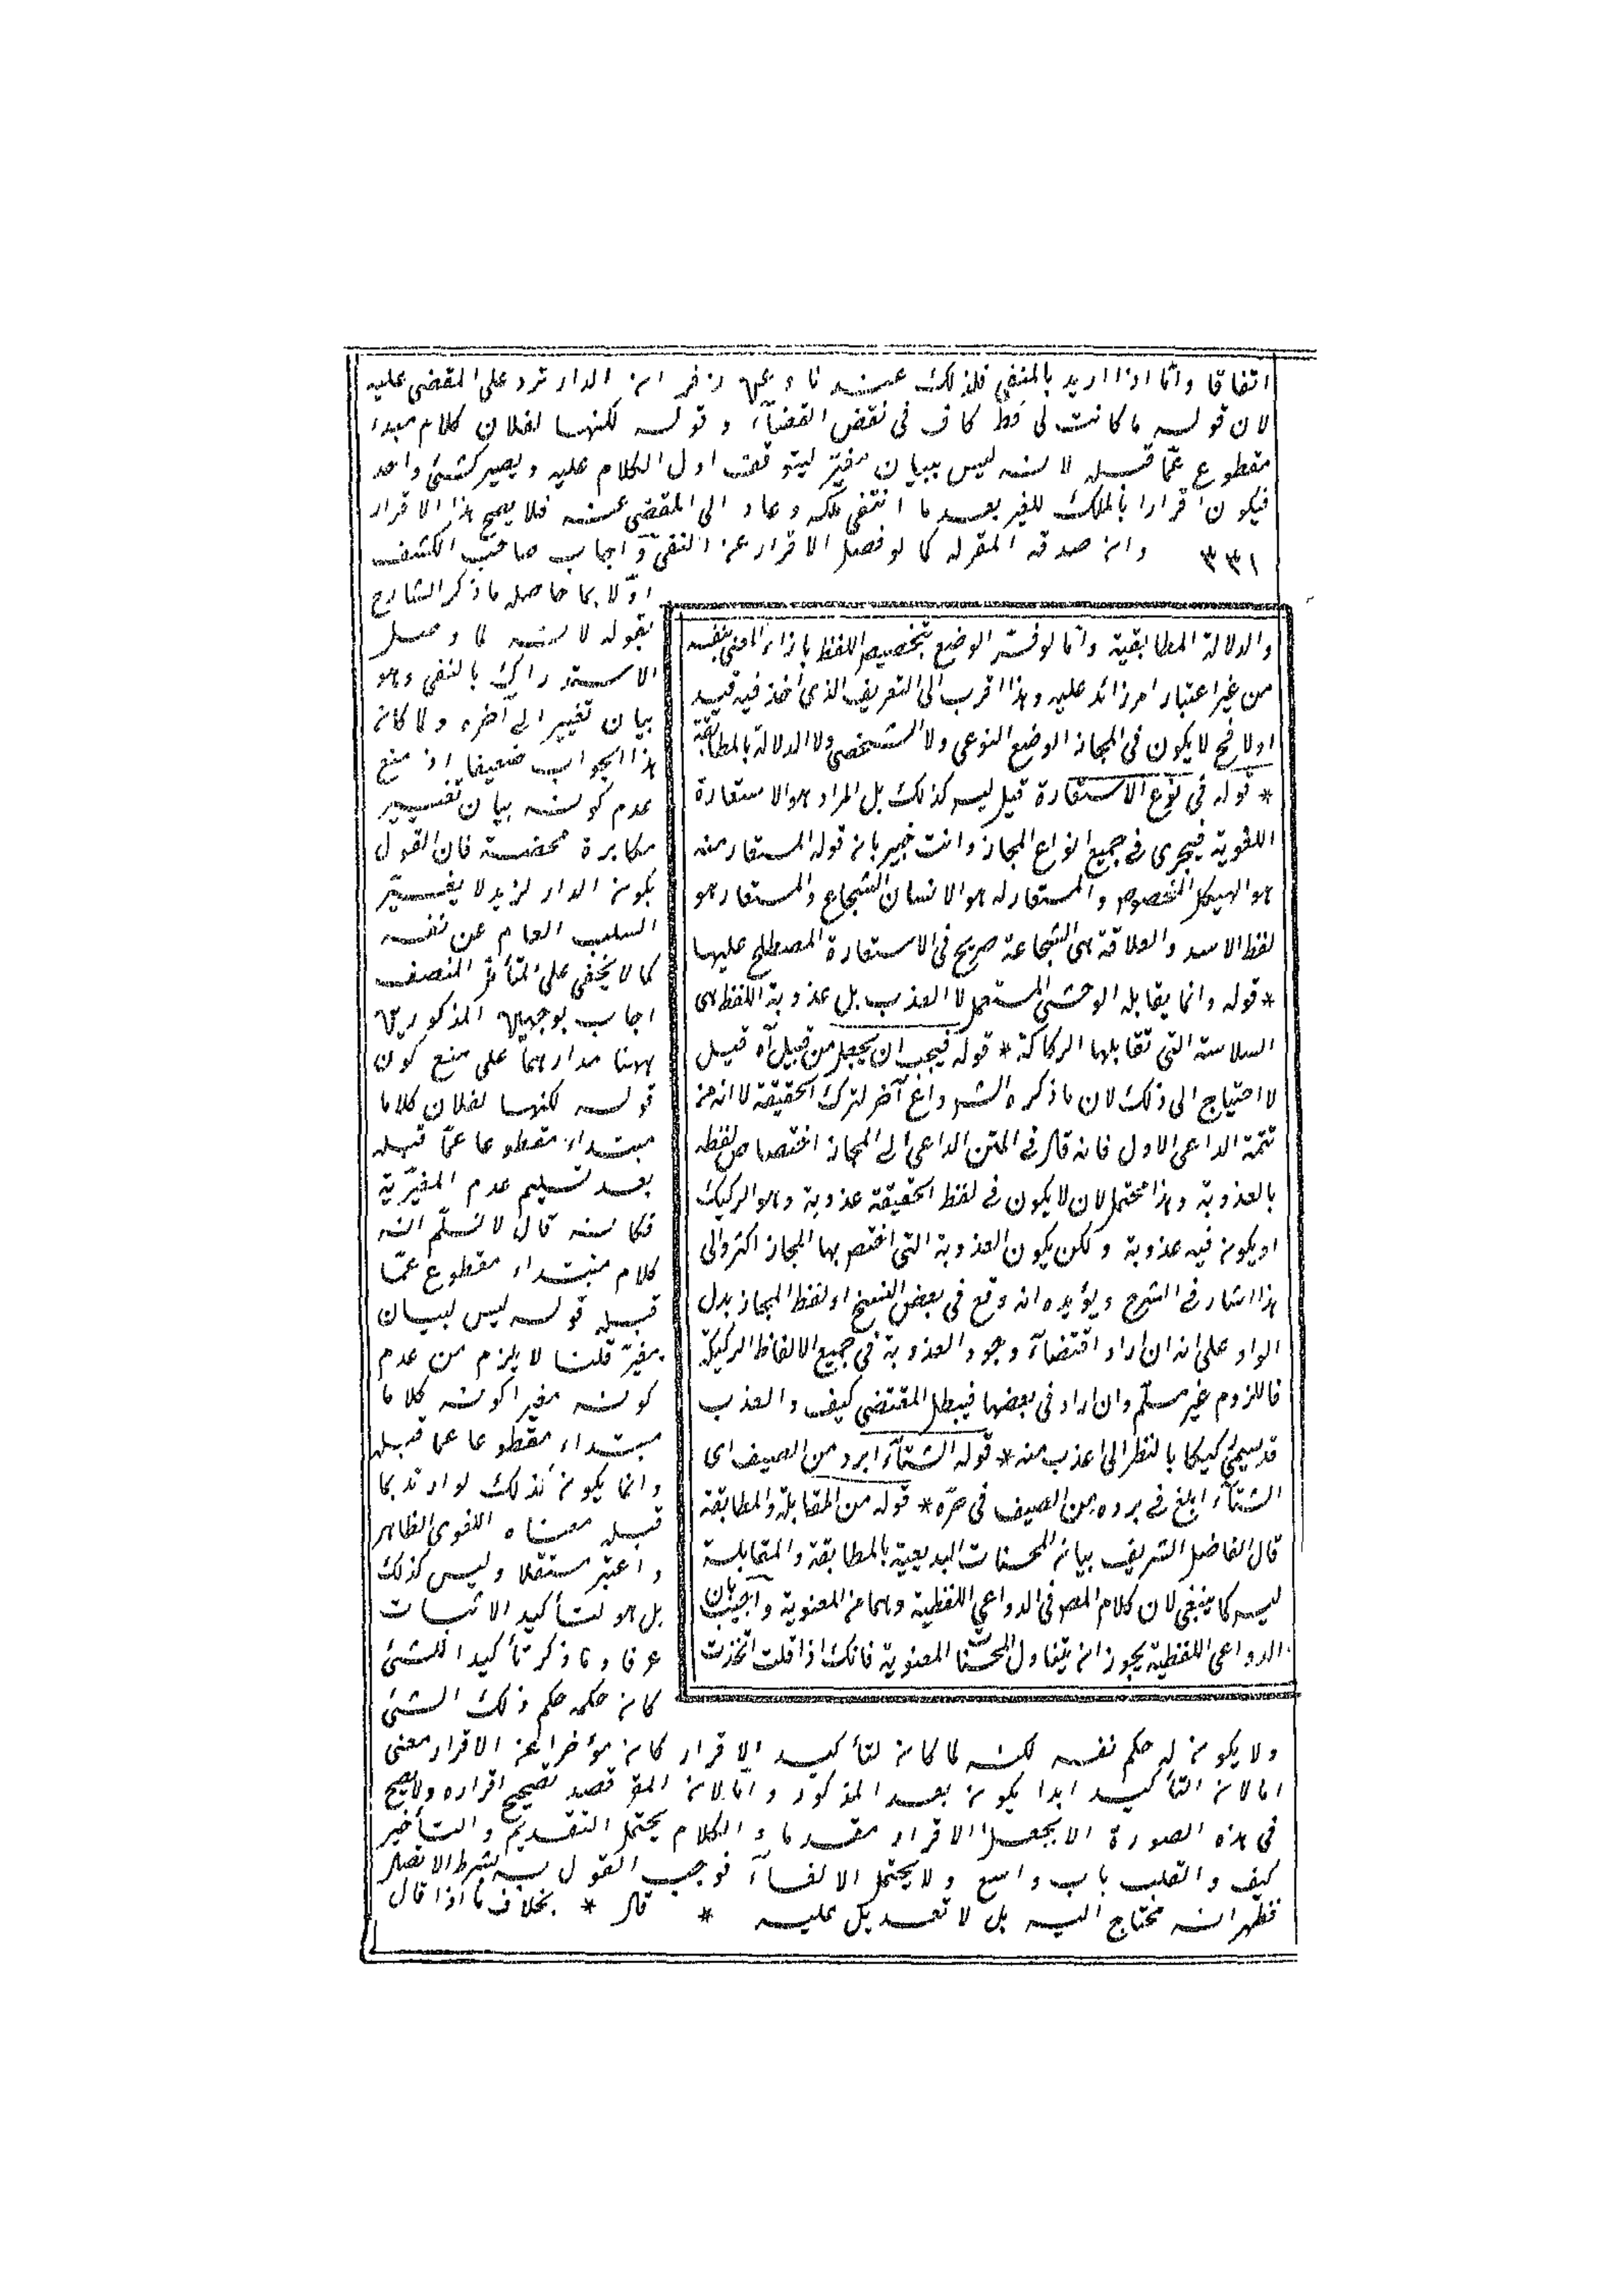 اتفاقا وأما اذا اريد بالمنفى فلذلك عندنا وعن زفر ان الدار ترد على المقضى عليه
لان قوله ما كانت لى قط كاف فى نقض القضاء وقوله لكنها لفلان كلام مبدء
مقطوع عما قبله لانه ليس ببيان مغير ليتوقف اول الكلام عليه ويصير كشئ واحد
فيكون اقرارا بالملك للغير بعد ما انتفى ملكه وعاد الى المقضى عنه فلا يصح هذا الاقرار
وان صدقه المقرله كما لو فصل الاقرار عن النفى واجاب صاحب الكشف
٣٣١
اولا بما حاصله ما ذكر الشارح
بقوله لانه لما وصل
الاستدراك بالنفى وهو
بيان تغيير الى آخره ولما كان
هذا الجواب ضعيفا اذ منع
عدم كونه بيان تغيير
مكابرة محضة فان القول
بكون الدار لزيد لا يغير
السلب العام عن نفسه
كما لا يخفى على المتأمل المنصف
اجاب بوجهين المذكورين
ههنا مدارهما على منع كون
قوله لكنها لفلان كلاما
مبتداء مقطوعا عما قبله
بعد تسليم عدم المغيرية
فكانه قال لا نسلم انه
كلام مبتداء مقطوع عما
قبله قوله ليس ببيان
مغير قلنا لا يلزم من عدم
كونه مغيرا كونه كلاما
مبتداء مقطوعا عما قبله
وانما يكون كذلك لو اريد بما
قبله معناه اللغوى الظاهر
واعتبر مستقلا وليس كذلك
بل هو لتأكيد الاثبات
عرفا وما ذكر تأكيدا للشئ
كان حكمه حكم ذلك الشئ
ولا يكون له حكم نفسه لكنه لما كان لتأكيد الاقرار كان مؤخرا عن الاقرار معنى
اما لان التأكيد ابدا يكون بعد المذكور واما لان المقر قصد تصحيح اقراره ولا يصح
فى هذه الصورة الا بجعل الاقرار مقدما والكلام يحتمل التقديم والتأخير
كيف والقلب باب واسع ولا يحتمل الالغاء فوجب القول به بشرط الاتصال
فظهر انه محتاج اليه بل لا تعديل عليه * قال * بخلاف ما اذا قال
والدلالة المطابقية واما لو فسر الوضع بتخصيص اللفظ بازاء المعنى بنفسه
من غير اعتبار امر زائد عليه وهذا اقرب الى التعريف الذى اخذ فيه قيد
اولا فح لا يكون فى المجاز الوضع النوعى ولا الشخصى ولا الدلالة بالمطابقة
* قوله فى نوع الاستعارة قيل ليس كذلك بل المراد هو الاستعارة
اللغوية فيجرى فى جميع انواع المجاز وانت خبير بان قوله المستعار منه
هو الهيكل المخصوص والمستعار له هو الانسان الشجاع والمستعار هو
لفظ الاسد والعلاقة هى الشجاعة صريح فى الاستعارة المصطلح عليها
* قوله وانما يقابله الوحشى المستعمل لا العذب بل عذوبة اللفظ هى
السلاسة التى تقابلها الركاكة * قوله فيجب ان يجعل من قبيل آه قيل
لا احتياج الى ذلك لان ما ذكره الشر داع آخر لترك الحقيقة لا انه من
تتمة الداعى الاول فانه قال فى المتن الداعى الى المجاز اختصاص لفظه
بالعذوبة وهذا محتمل لان لا يكون فى لفظ الحقيقة عذوبة وهو الركيك
او يكون فيه عذوبة ولكن يكون العذوبة التى اختص بها المجاز اكثر والى
هذا اشار فى الشرح ويؤيده انه وقع فى بعض النسخ او لفظ المجاز بدل
الواو على انه ان اراد اقتضاء وجود العذوبة فى جميع الالفاظ الركيكة
فاللزوم غير مسلم وان اراد فى بعضها فيبطل المقتضى كيف والعذب
قد يسمى ركيكا بالنظر الى اعذب منه * قوله الشتاء ابرد من الصيف اى
الشتاء ابلغ فى برده من الصيف فى حره * قوله من المقابلة والمطابقة
قال الفاضل الشريف بيان المحسنات البديعية بالمطابقة والمقابلة
ليس كما ينبغى لان كلام المص فى الدواعى اللفظية وهما من المعنوية واجيب بان
الدواعى اللفظية يجوز ان يتناول المحسنات المعنوية فانك اذا قلت اتخذت